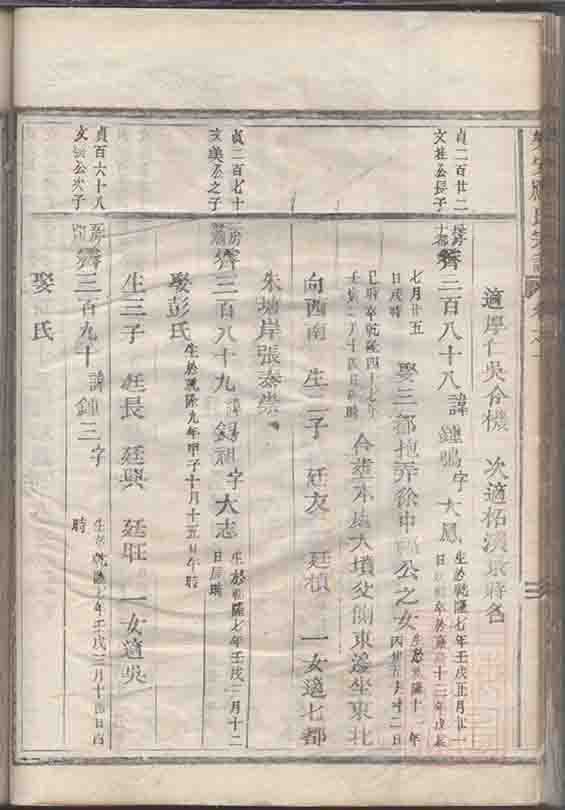 適厚仁吳令機 次適柘溪
貞二百廿二
文 公長子
齊三百八十八 諱鍾 字大鳳 生於乾隆七年壬戌正月廿一
日 卒於 十二年戊辰
七月廿五
日戌時
娶三都抱弄徐申 公之女 生於乾隆十一年
丙 日
巳時卒乾隆四十七年
壬寅 月十四日 時
合塟本 大墳父側東邊坐東北
向西南 生二子 廷友 廷楨 一女適七都
朱塘岸張泰崇
貞二百七十
文美公之子
齊三百八十九 諱錫祖 字大志 生於乾隆七年壬戌二月十二
日辰時
娶彭氏 生於乾隆九年甲子十月十五日午時
生三子 廷長 廷興 廷旺 一女適吳
貞百六十八
文 公次子
齊三百九十 諱鍾三 字 生於乾隆七年壬戌三月十四日酉
時
娶 氏